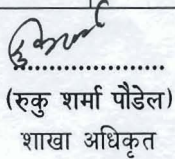 ....................
(रुकु शर्मा पौडेल)
शाखा अधिकृत